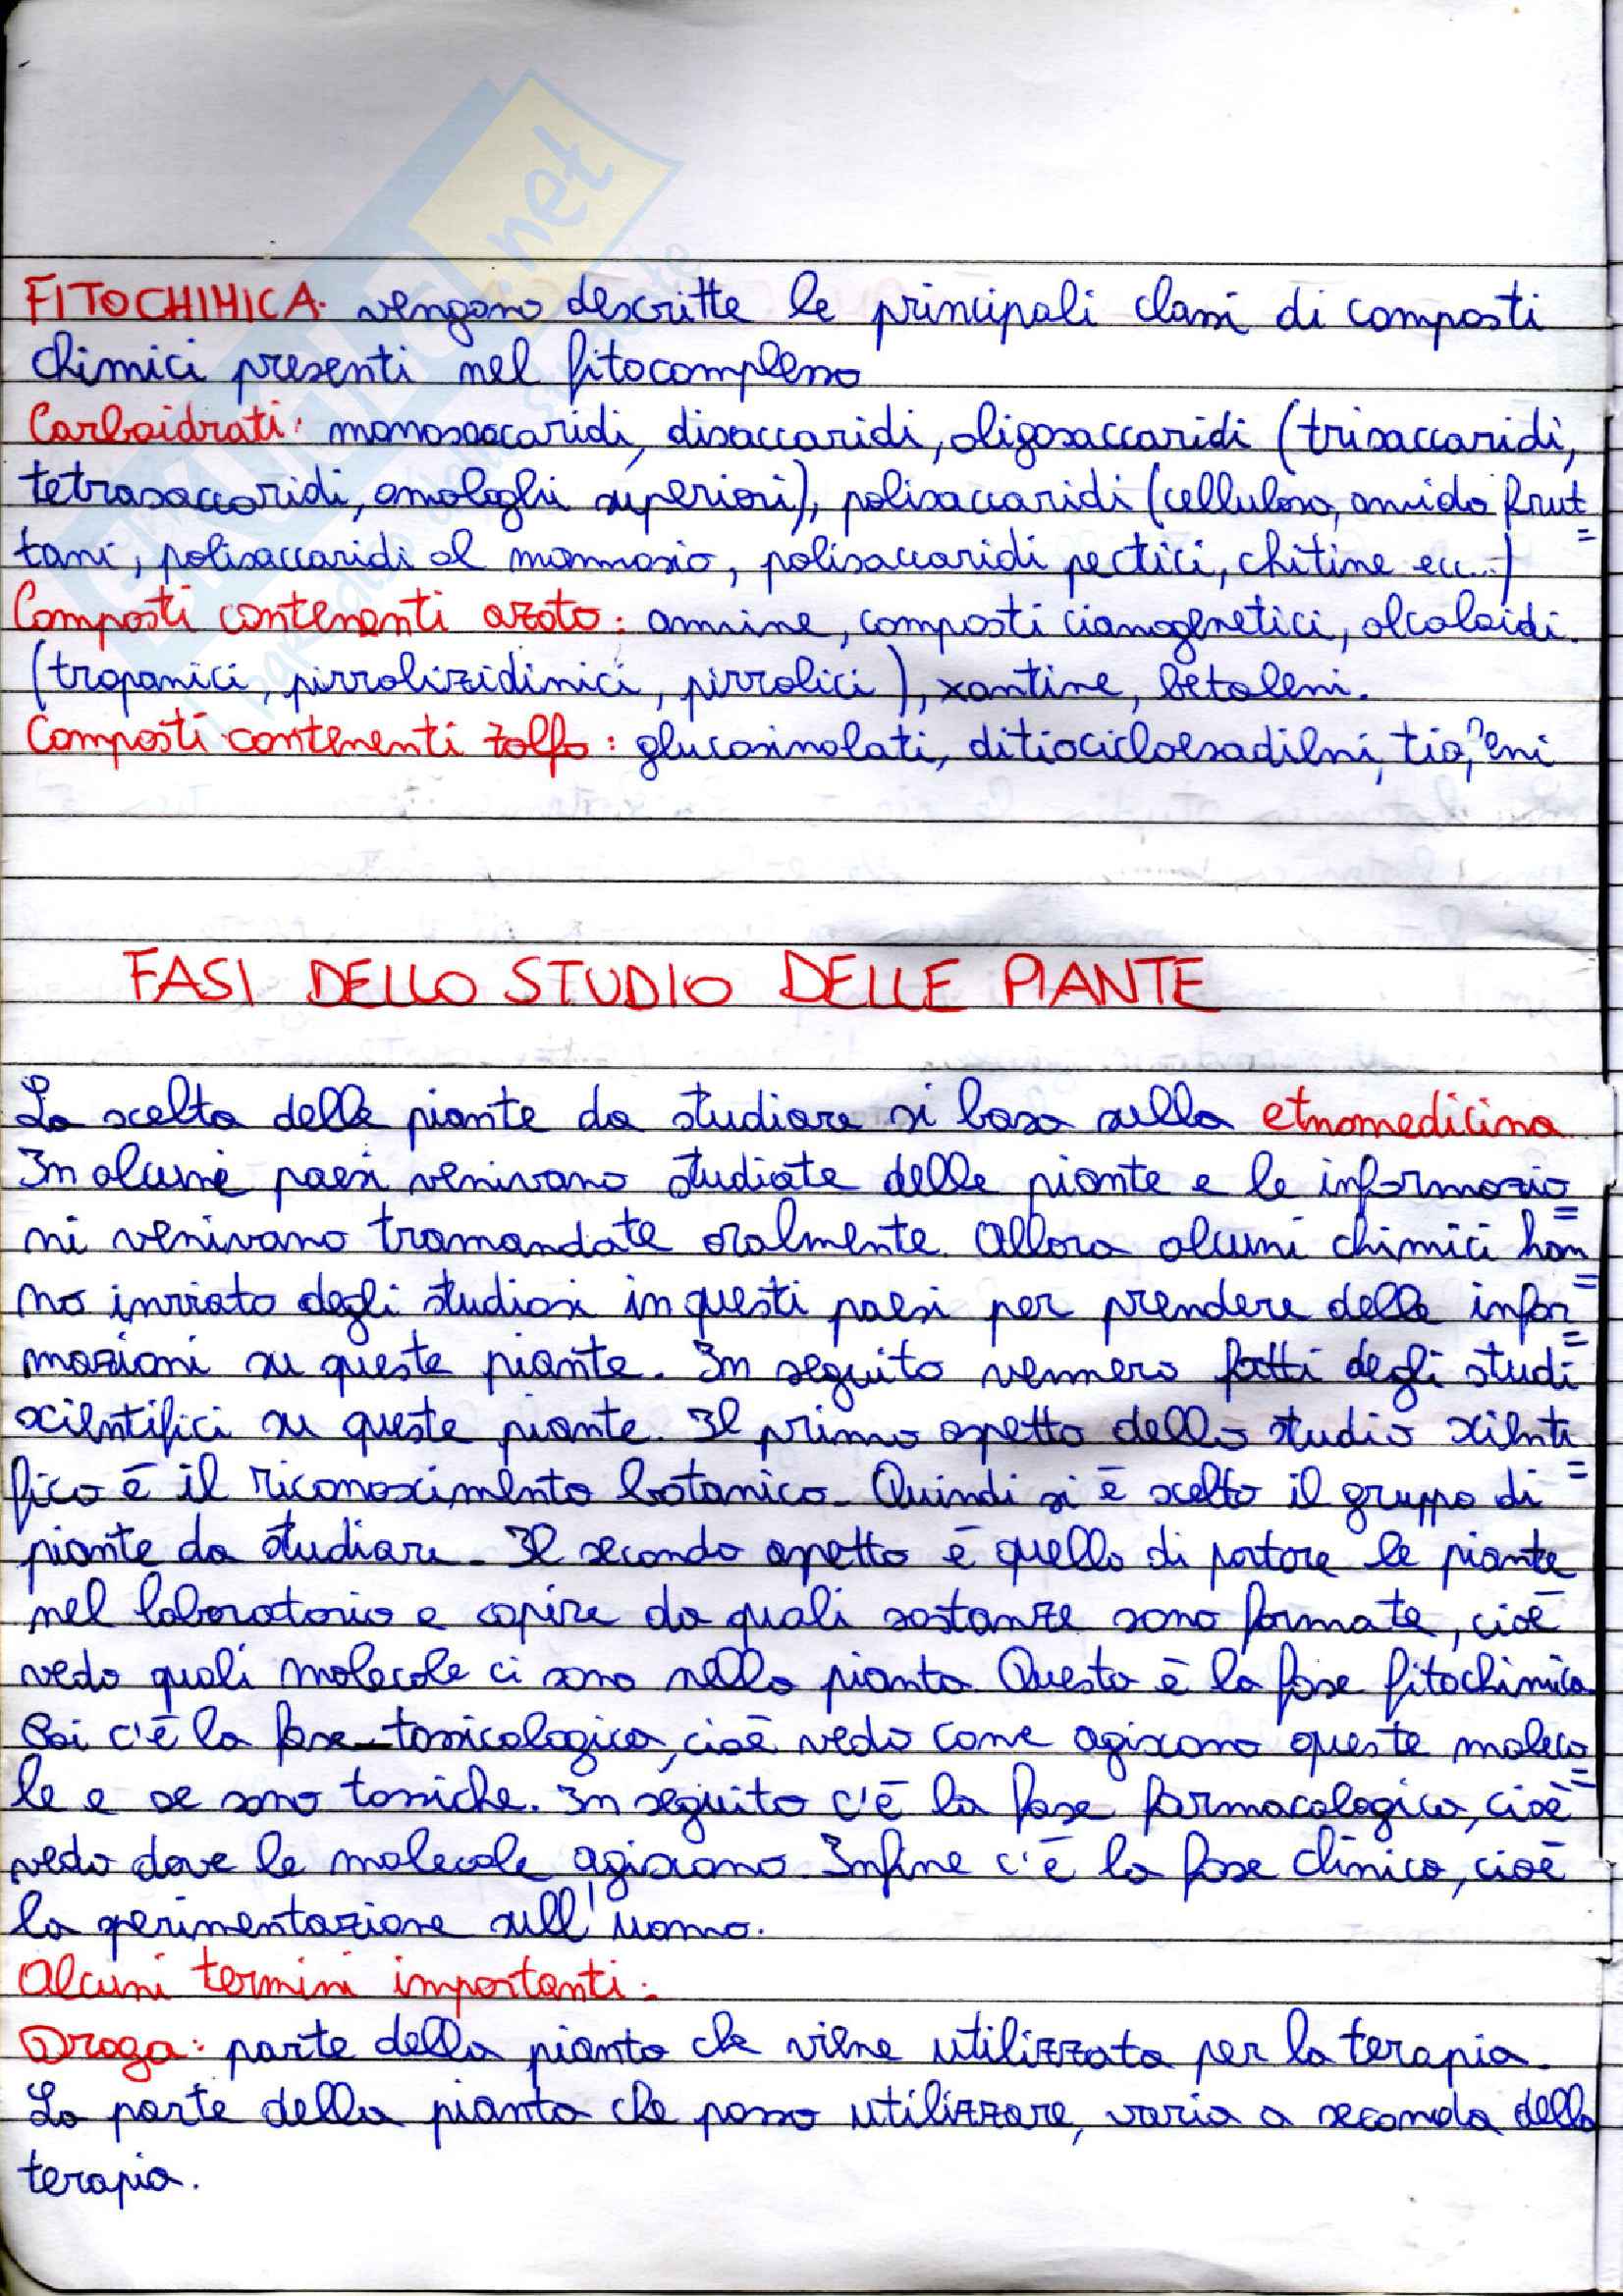 FITOCHIMICA: vengono descritte le principali classi di composti
chimici presenti nel fitocomplesso
Carboidrati: monosaccaridi, disaccaridi, oligosaccaridi (trisaccaridi,
tetrasaccaridi, omologhi superiori), polisaccaridi (cellulosa, amido frut=
tani, polisaccaridi al mannosio, polisaccaridi pectici, chitine ecc...)
Composti contenenti azoto: ammine, composti cianogenetici, alcaloidi.
(tropanici, pirrolizidinici, pirrolici), xantine, betaleni.
Composti contenenti zolfo: glucosinolati, ditiocicloesadieni,
FASI DELLO STUDIO DELLE PIANTE
La scelta delle piante da studiare si basa sulla etnomedicina
In alcuni paesi venivano studiate delle piante e le informazio=
ni venivano tramandate oralmente. Allora alcuni chimici han=
no inviato degli studiosi in questi paesi per prendere delle infor=
mazioni su queste piante. In seguito vennero fatti degli studi
scientifici su queste piante. Il primo aspetto dello studio scienti=
fico è il riconoscimento botanico. Quindi si è scelto il gruppo di
piante da studiare. Il secondo aspetto è quello di portare le piante
nel laboratorio e capire da quali sostanze sono formate, cioè
vedo quali molecole ci sono nella pianta. Questa è la fase fitochimica.
Poi c'è la fase tossicologica, cioè vedo come agiscono queste moleco=
le e se sono tossiche. In seguito c'è la fase farmacologica, cioè
vedo dove le molecole agiscono. Infine c'è la fase clinica, cioè
la sperimentazione sull'uomo.
Alcuni termini importanti:
Droga: parte della pianta che viene utilizzata per la terapia.
La parte della pianta che posso utilizzare, varia a seconda della
terapia.